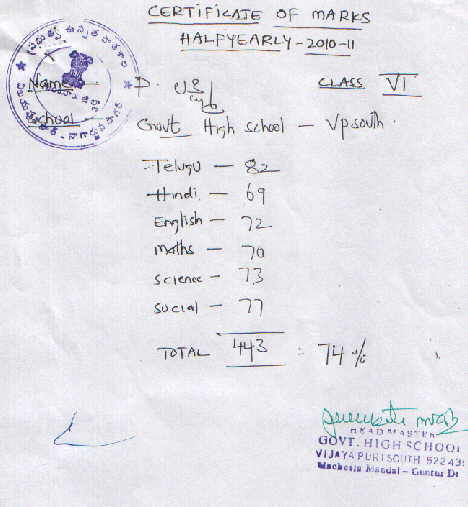 CERTIFICATE OF MARKS
HALFYEARLY - 2010-11
Name - D. CLASS VI
School
Govt High school - Vpsouth.
Telugu - 82
Hindi - 69
English - 72
maths - 70
science - 73
social - 77
TOTAL 443 = 74 %
HEAD MASTER
GOVT. HIGH SCHOOL
VIJAYAPURI SOUTH 522 43
Macherla Mandal - Guntur Dt